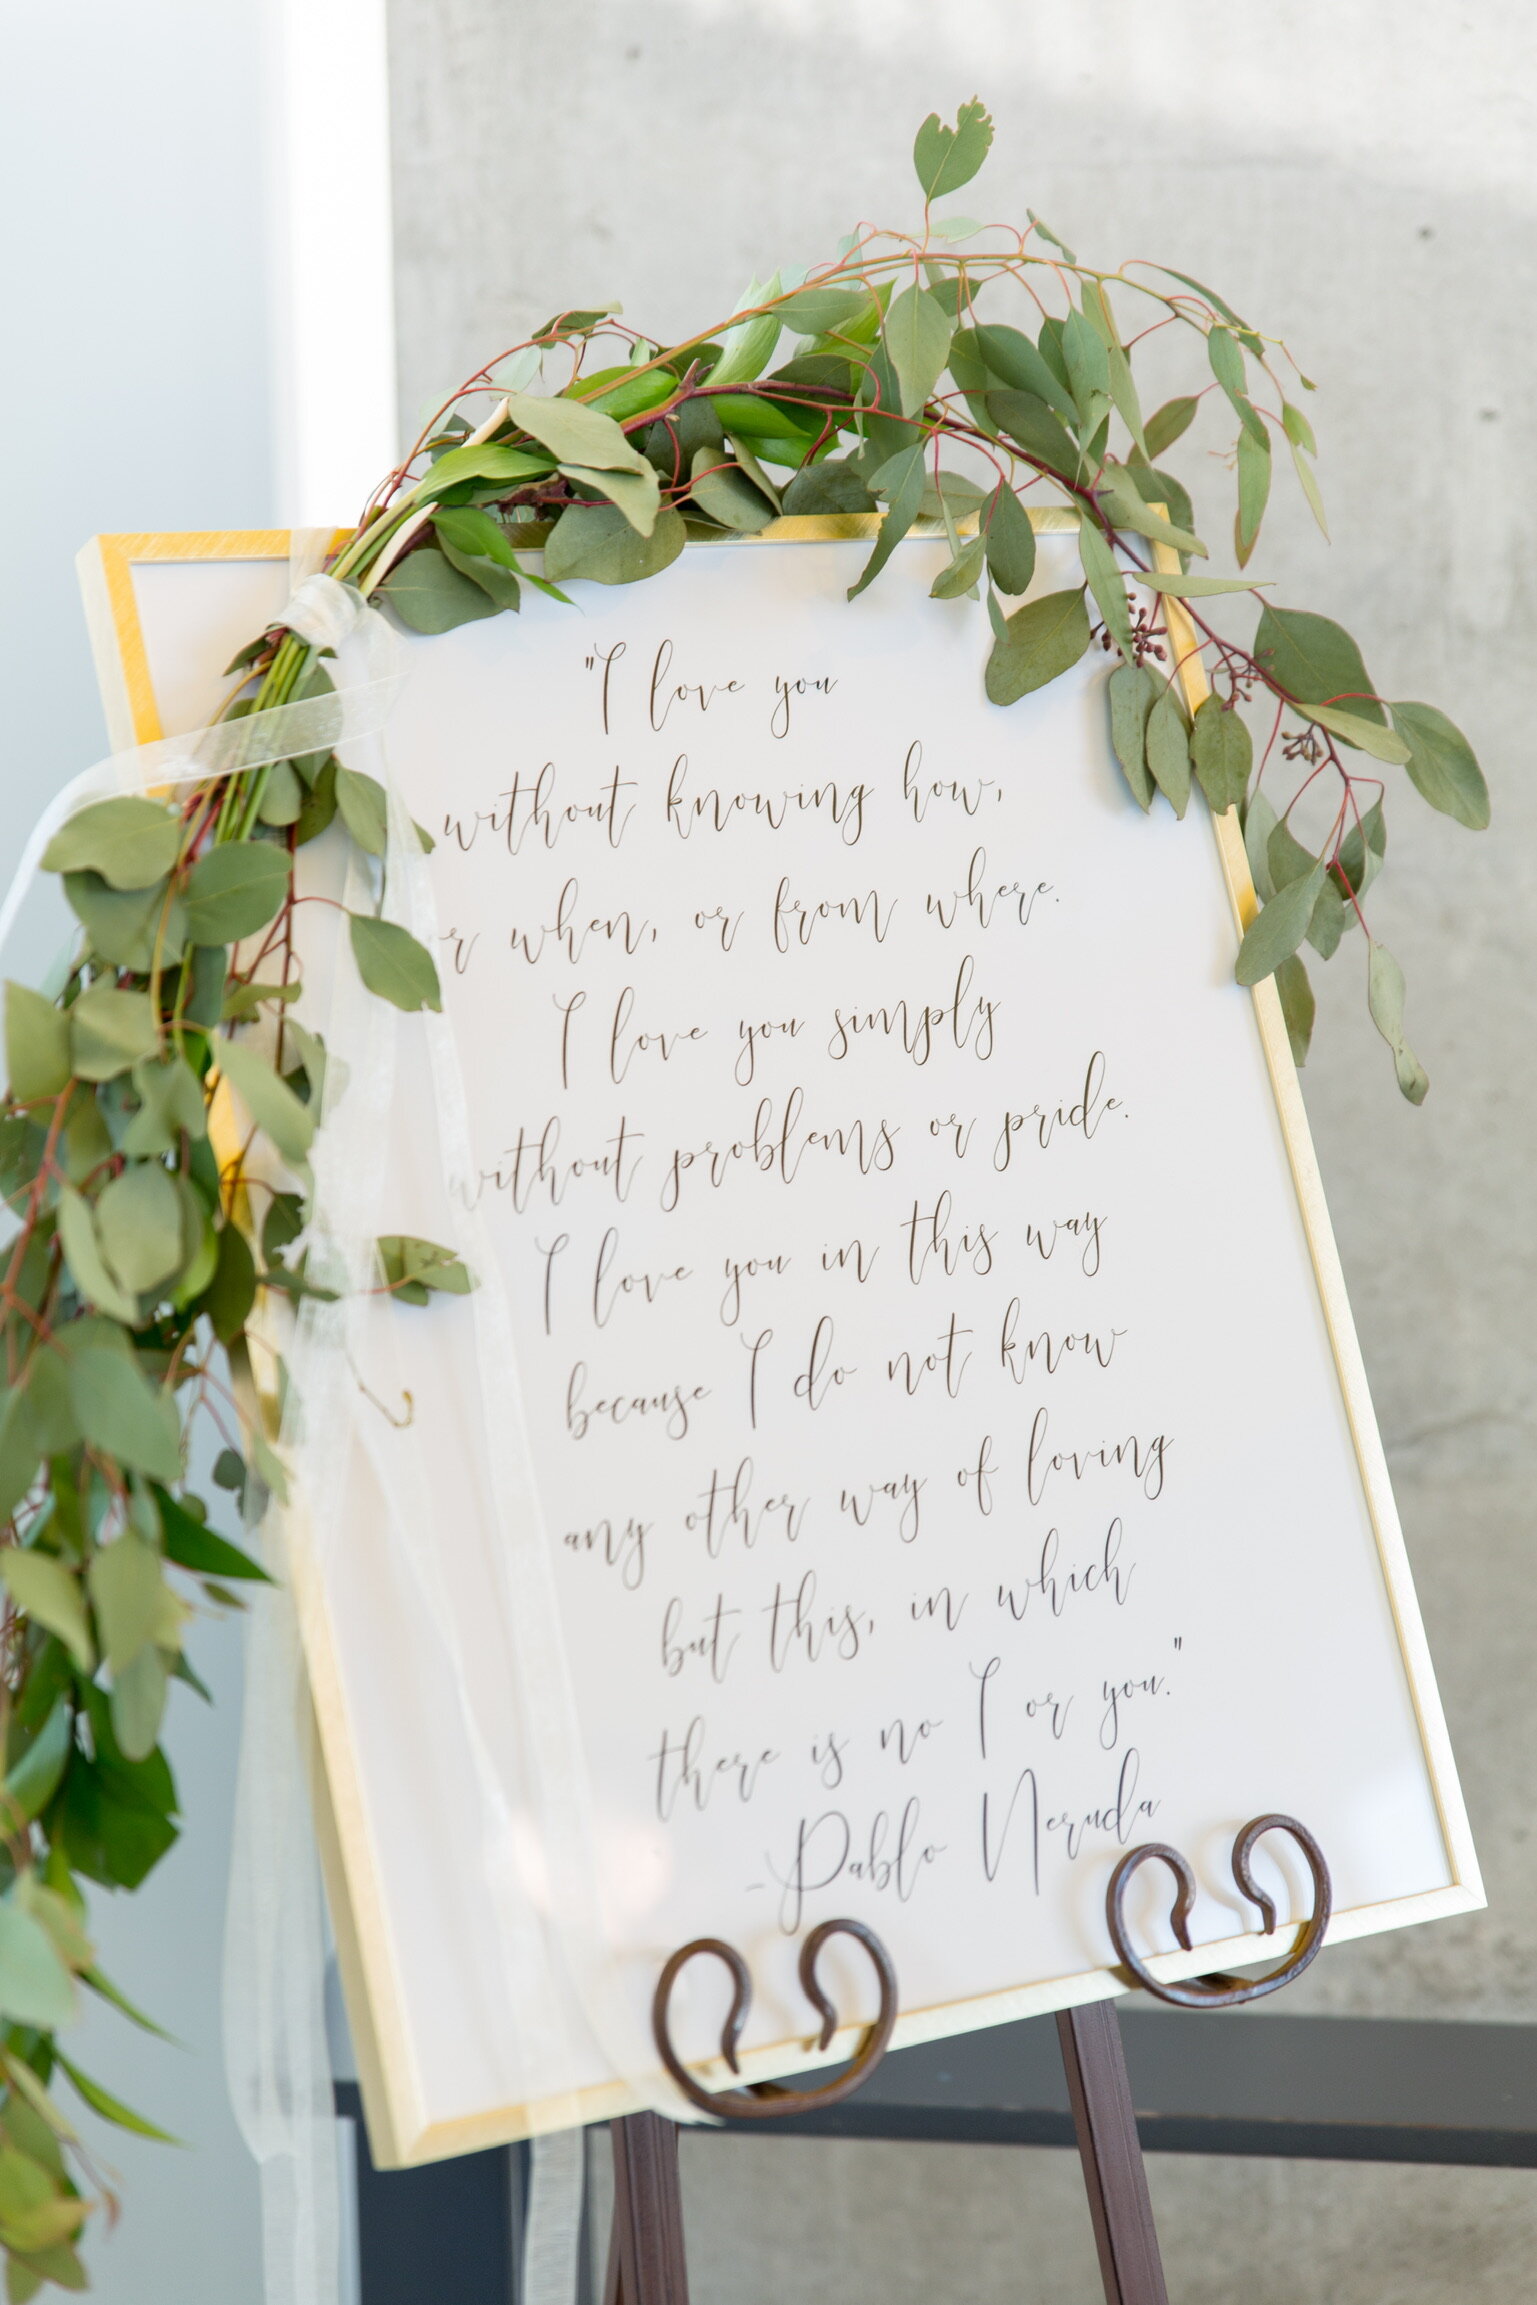 "I love you
without knowing how,
or when, or from where.
I love you simply
without problems or pride.
I love you in this way
because I do not know
any other way of loving
but this, in which
there is no I or you."
-Pablo Neruda